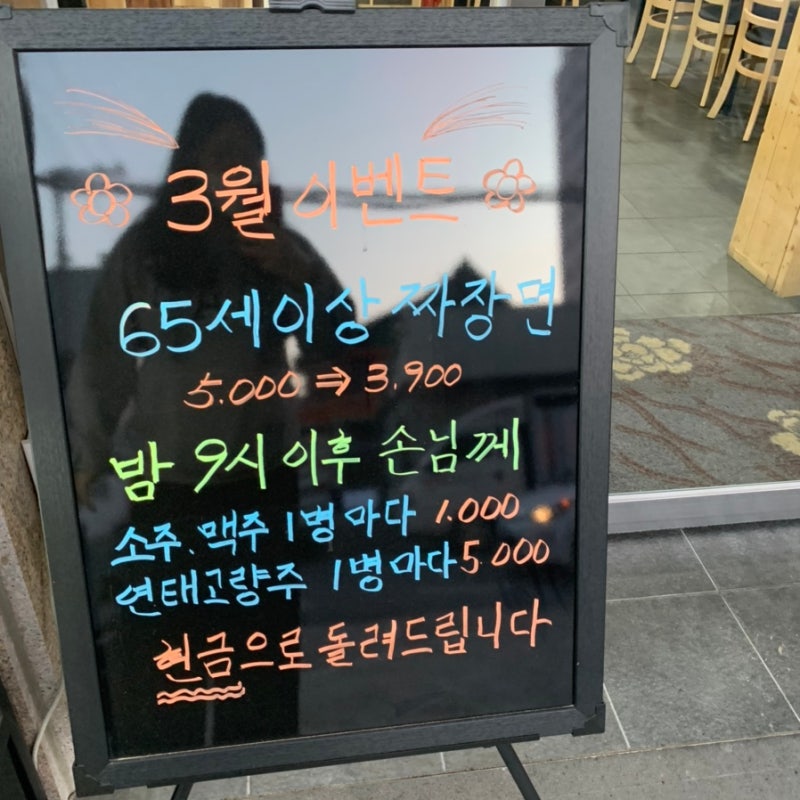 3월 이벤트
65세이상 짜장면
5.000 ⇒ 3.900
밤 9시 이후 손님께
소주. 맥주 1병 마다 1.000
연태고량주 1병마다 5.000
현금으로 돌려드립니다